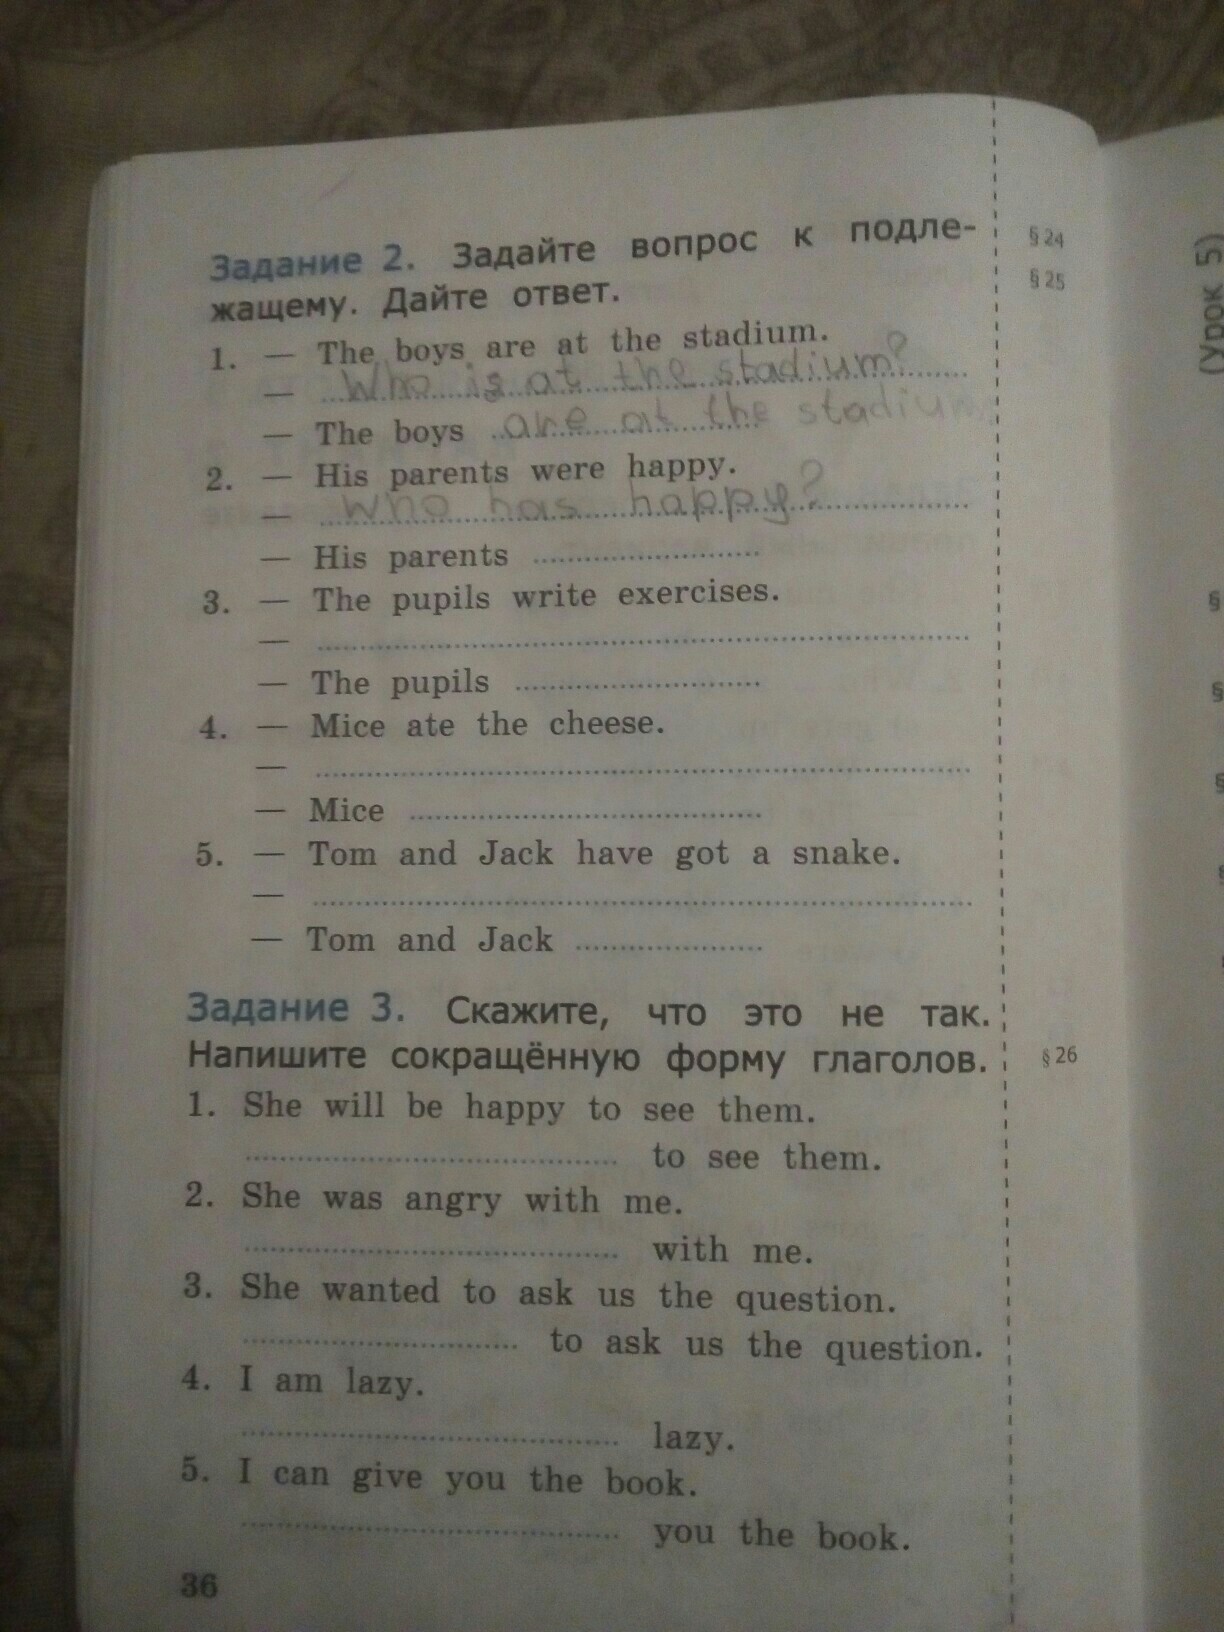 Задание 2. Задайте вопрос к подле-
жащему. Дайте ответ.
§ 24
§ 25
1. — The boys are at the stadium.
— Who is at the stadium?
— The boys are at the stadium
2. — His parents were happy.
— Who has happy?
— His parents ........................
3. — The pupils write exercises.
— ........................
— The pupils ........................
4. — Mice ate the cheese.
— ........................
— Mice ........................
5. — Tom and Jack have got a snake.
— ........................
— Tom and Jack ........................
Задание 3. Скажите, что это не так.
Напишите сокращённую форму глаголов.
§ 26
1. She will be happy to see them.
........................ to see them.
2. She was angry with me.
........................ with me.
3. She wanted to ask us the question.
........................ to ask us the question.
4. I am lazy.
........................ lazy.
5. I can give you the book.
........................ you the book.
36
(Урок 5)
§
§
§